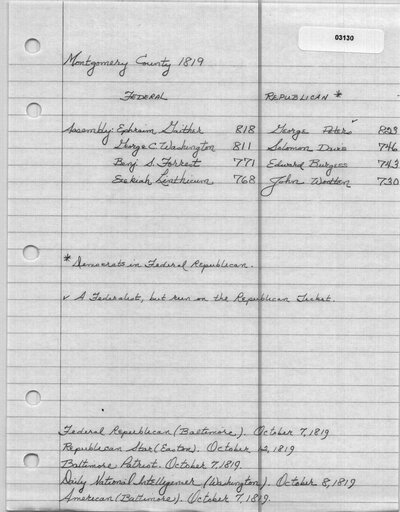 03130
Montgomery County 1819
FEDERAL REPUBLICAN *
Assembly: Ephraim Gaither 818 George Peter ✓ 823
George C Washington 811 Solomon Davis 746
Benj S. Forrest 771 Edward Burgess 743
Ezekiah Linthicum 768 John Wootton 730
* Democrats in Federal Republican.
✓ A Federalist, but run on the Republican Ticket.
Federal Republican (Baltimore). October 7, 1819
Republican Star (Easton). October 12, 1819
Baltimore Patriot. October 7, 1819.
Daily National Intelligencer (Washington). October 8, 1819
American (Baltimore). October 7, 1819.